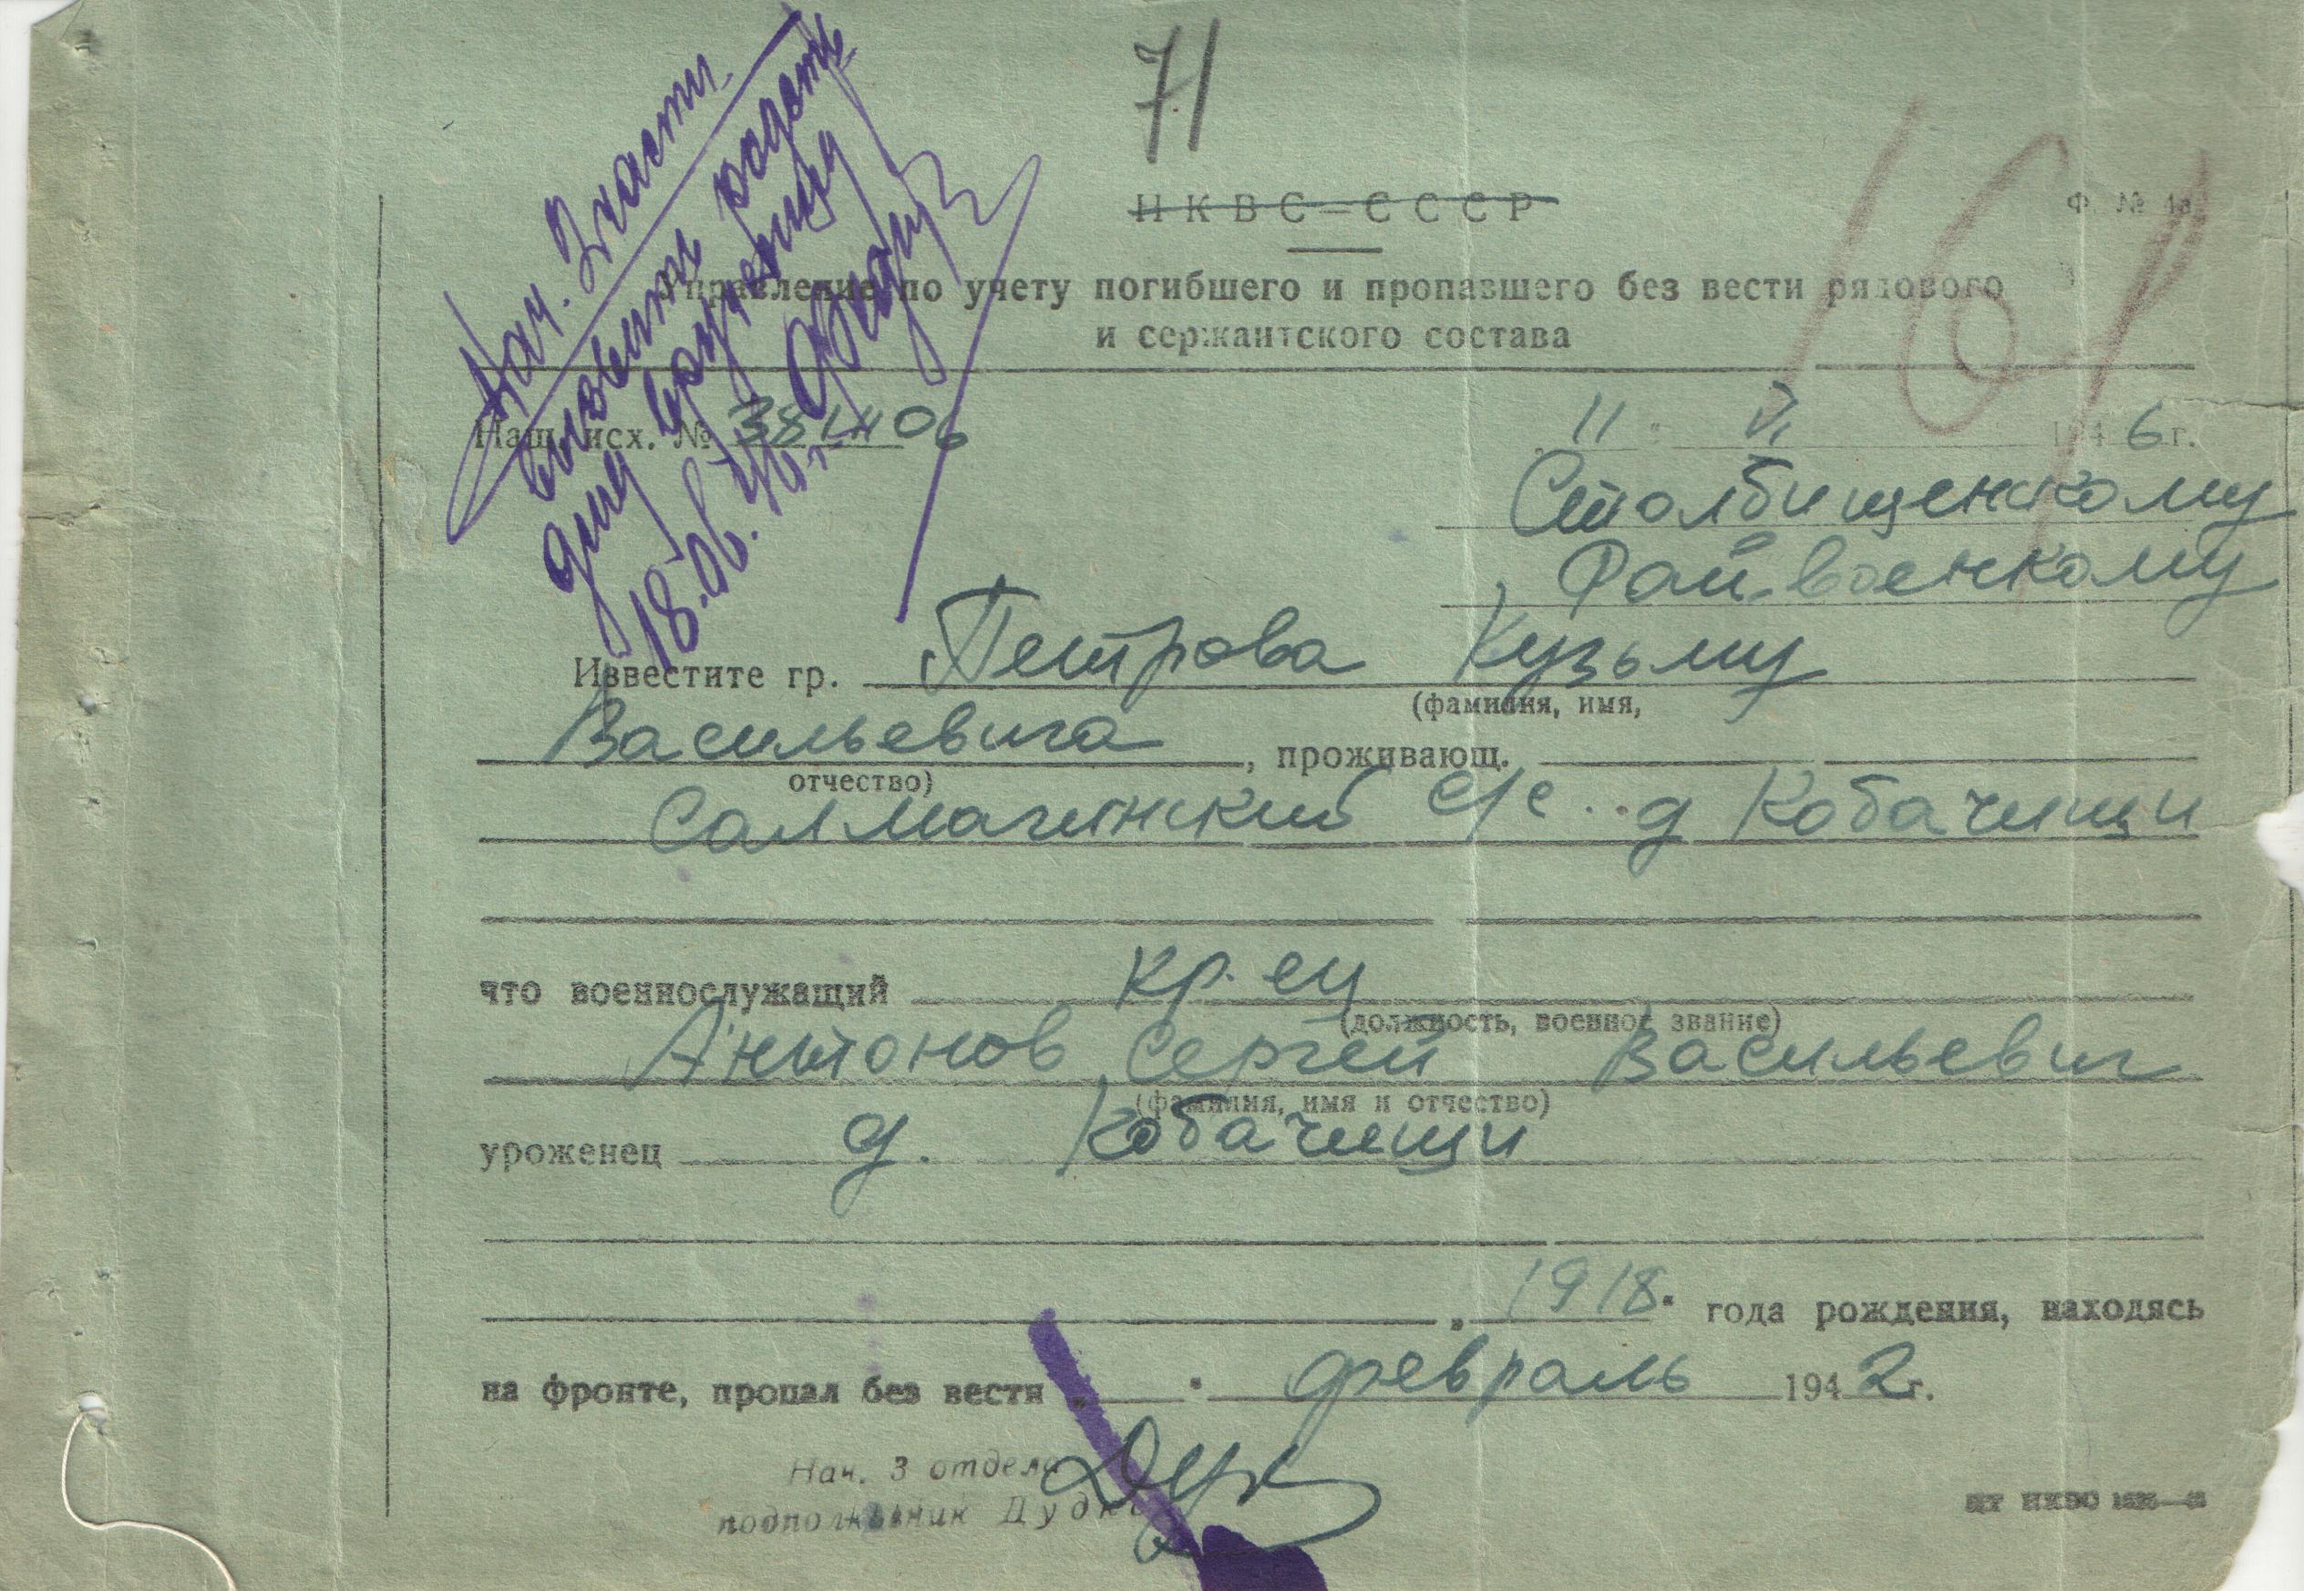 71
161
НКВС—СССР
Ф. № 4а
Управление по учету погибшего и пропавшего без вести рядового
и сержантского состава
Нач. 3 части
вызвать родств.
для вручения
18.06.46 г.
Наш исх. №
11 VI 1946 г.
Столбищенскому
Райвоенкому
Известите гр. Петрова Кузьму
(фамилия, имя,
Васильевича, проживающ.
отчество)
Салмачинский с/с. д Кобачищи
что военнослужащий кр-ец
(должность, военное звание)
Антонов Сергей Васильевич
(фамилия, имя и отчество)
уроженец д. Кобачищи
"1918" года рождения, находясь
на фронте, пропал без вести " " февраль 1942 г.
Нач. 3 отдела
подполковник Дудка